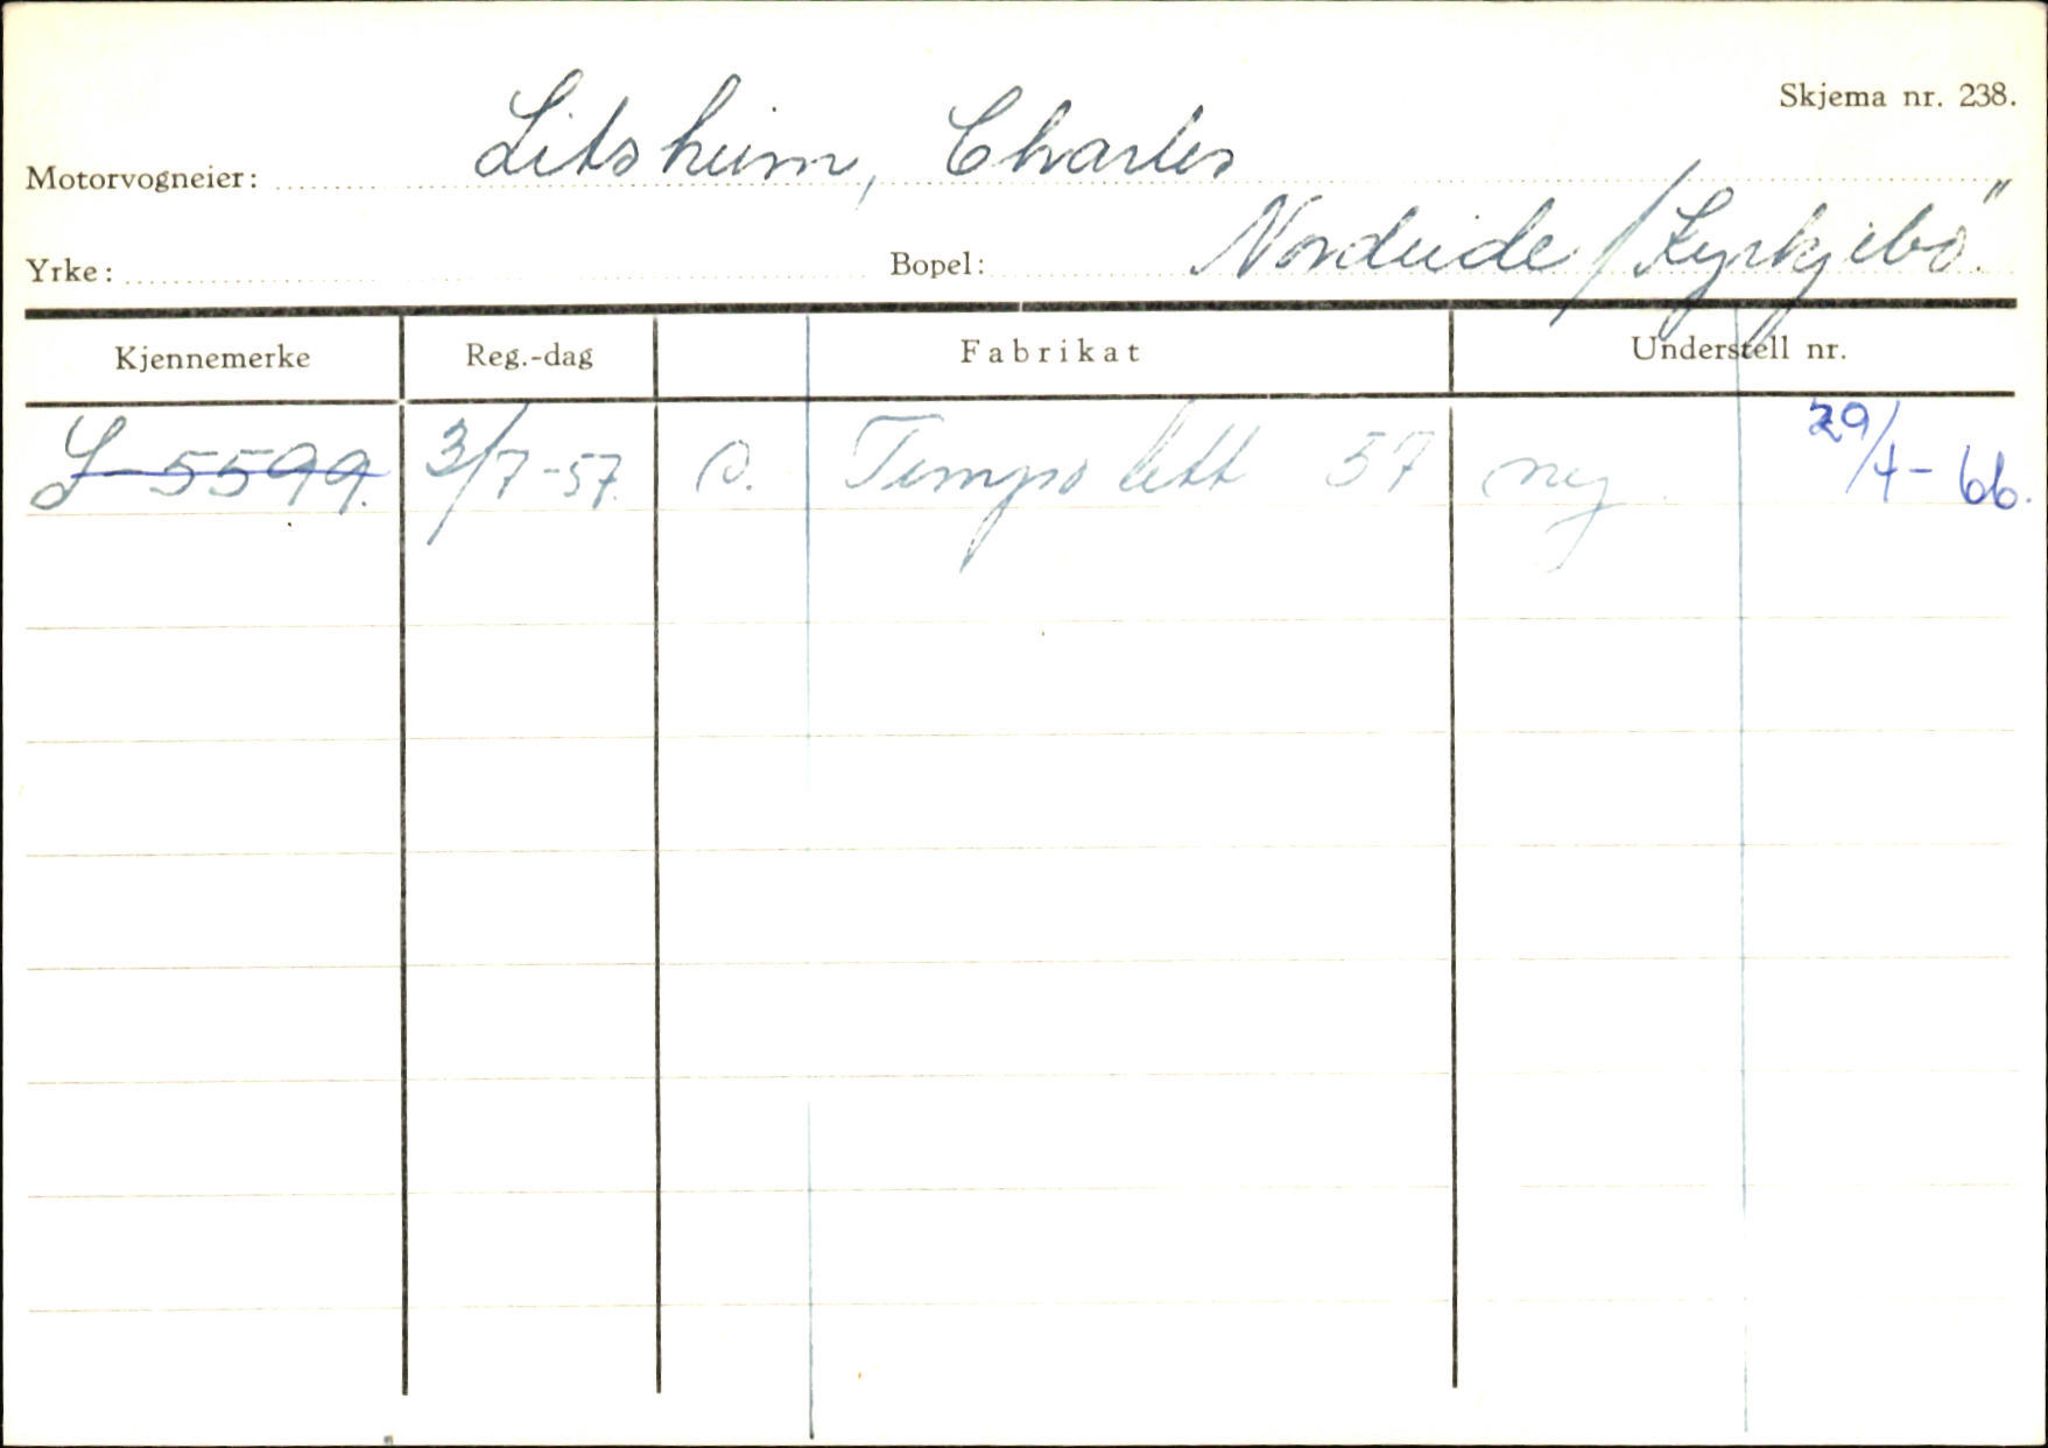 Skjema nr. 238.
Motorvogneier: Litsheim, Charles
Yrke: Bopel: Nordeide / Kyrkjebö.
Kjennemerke Reg.-dag Fabrikat Understell nr.
S-5599. 3/7-57. O. Tempo lett 57 ny. 29/4-66.